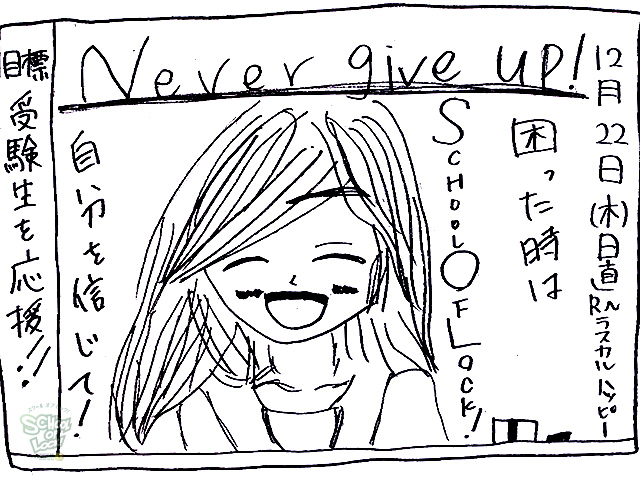 Never give up!
12月22日(木)日直RNラスカルハッピー
困った時は
SCHOOL OF LOCK!
自分を信じて!
目標 受験生を応援!!
SCHOOL OF LOCK!